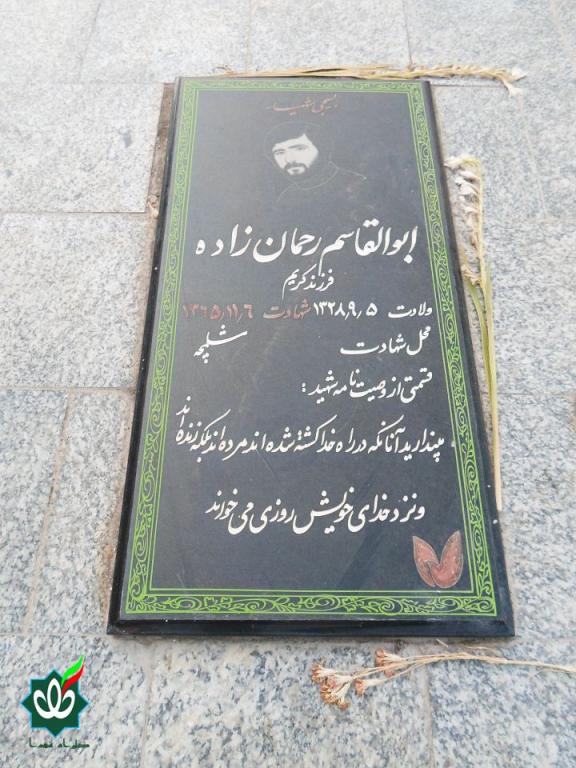 بسیجی شهید
ابوالقاسم رحمان زاده
فرزند کریم
ولادت ۱۳۲۸/۹/۵ شهادت ۱۳۶۵/۱۱/۶
محل شهادت شلمچه
قسمتی از وصیت نامه شهید :
مپندارید آنانکه در راه خدا کشته شده اند مرده اند بلکه زنده اند
و نزد خدای خویش روزی می خواند